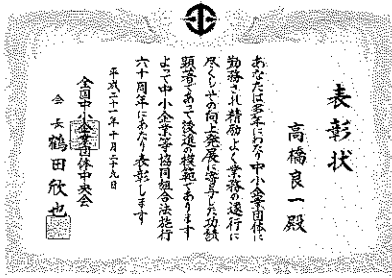 表彰状
高橋良一殿
あなたは多年にわたり中小企業団体に
勤務され精励よく業務の遂行に
尽くしその向上発展に寄与した功績
顕著であって後進の模範であります
よって中小企業等協同組合法施行
六十周年にあたり表彰します
平成二十一年十月二十九日
全国中小企業団体中央会
会長 鶴田欣也